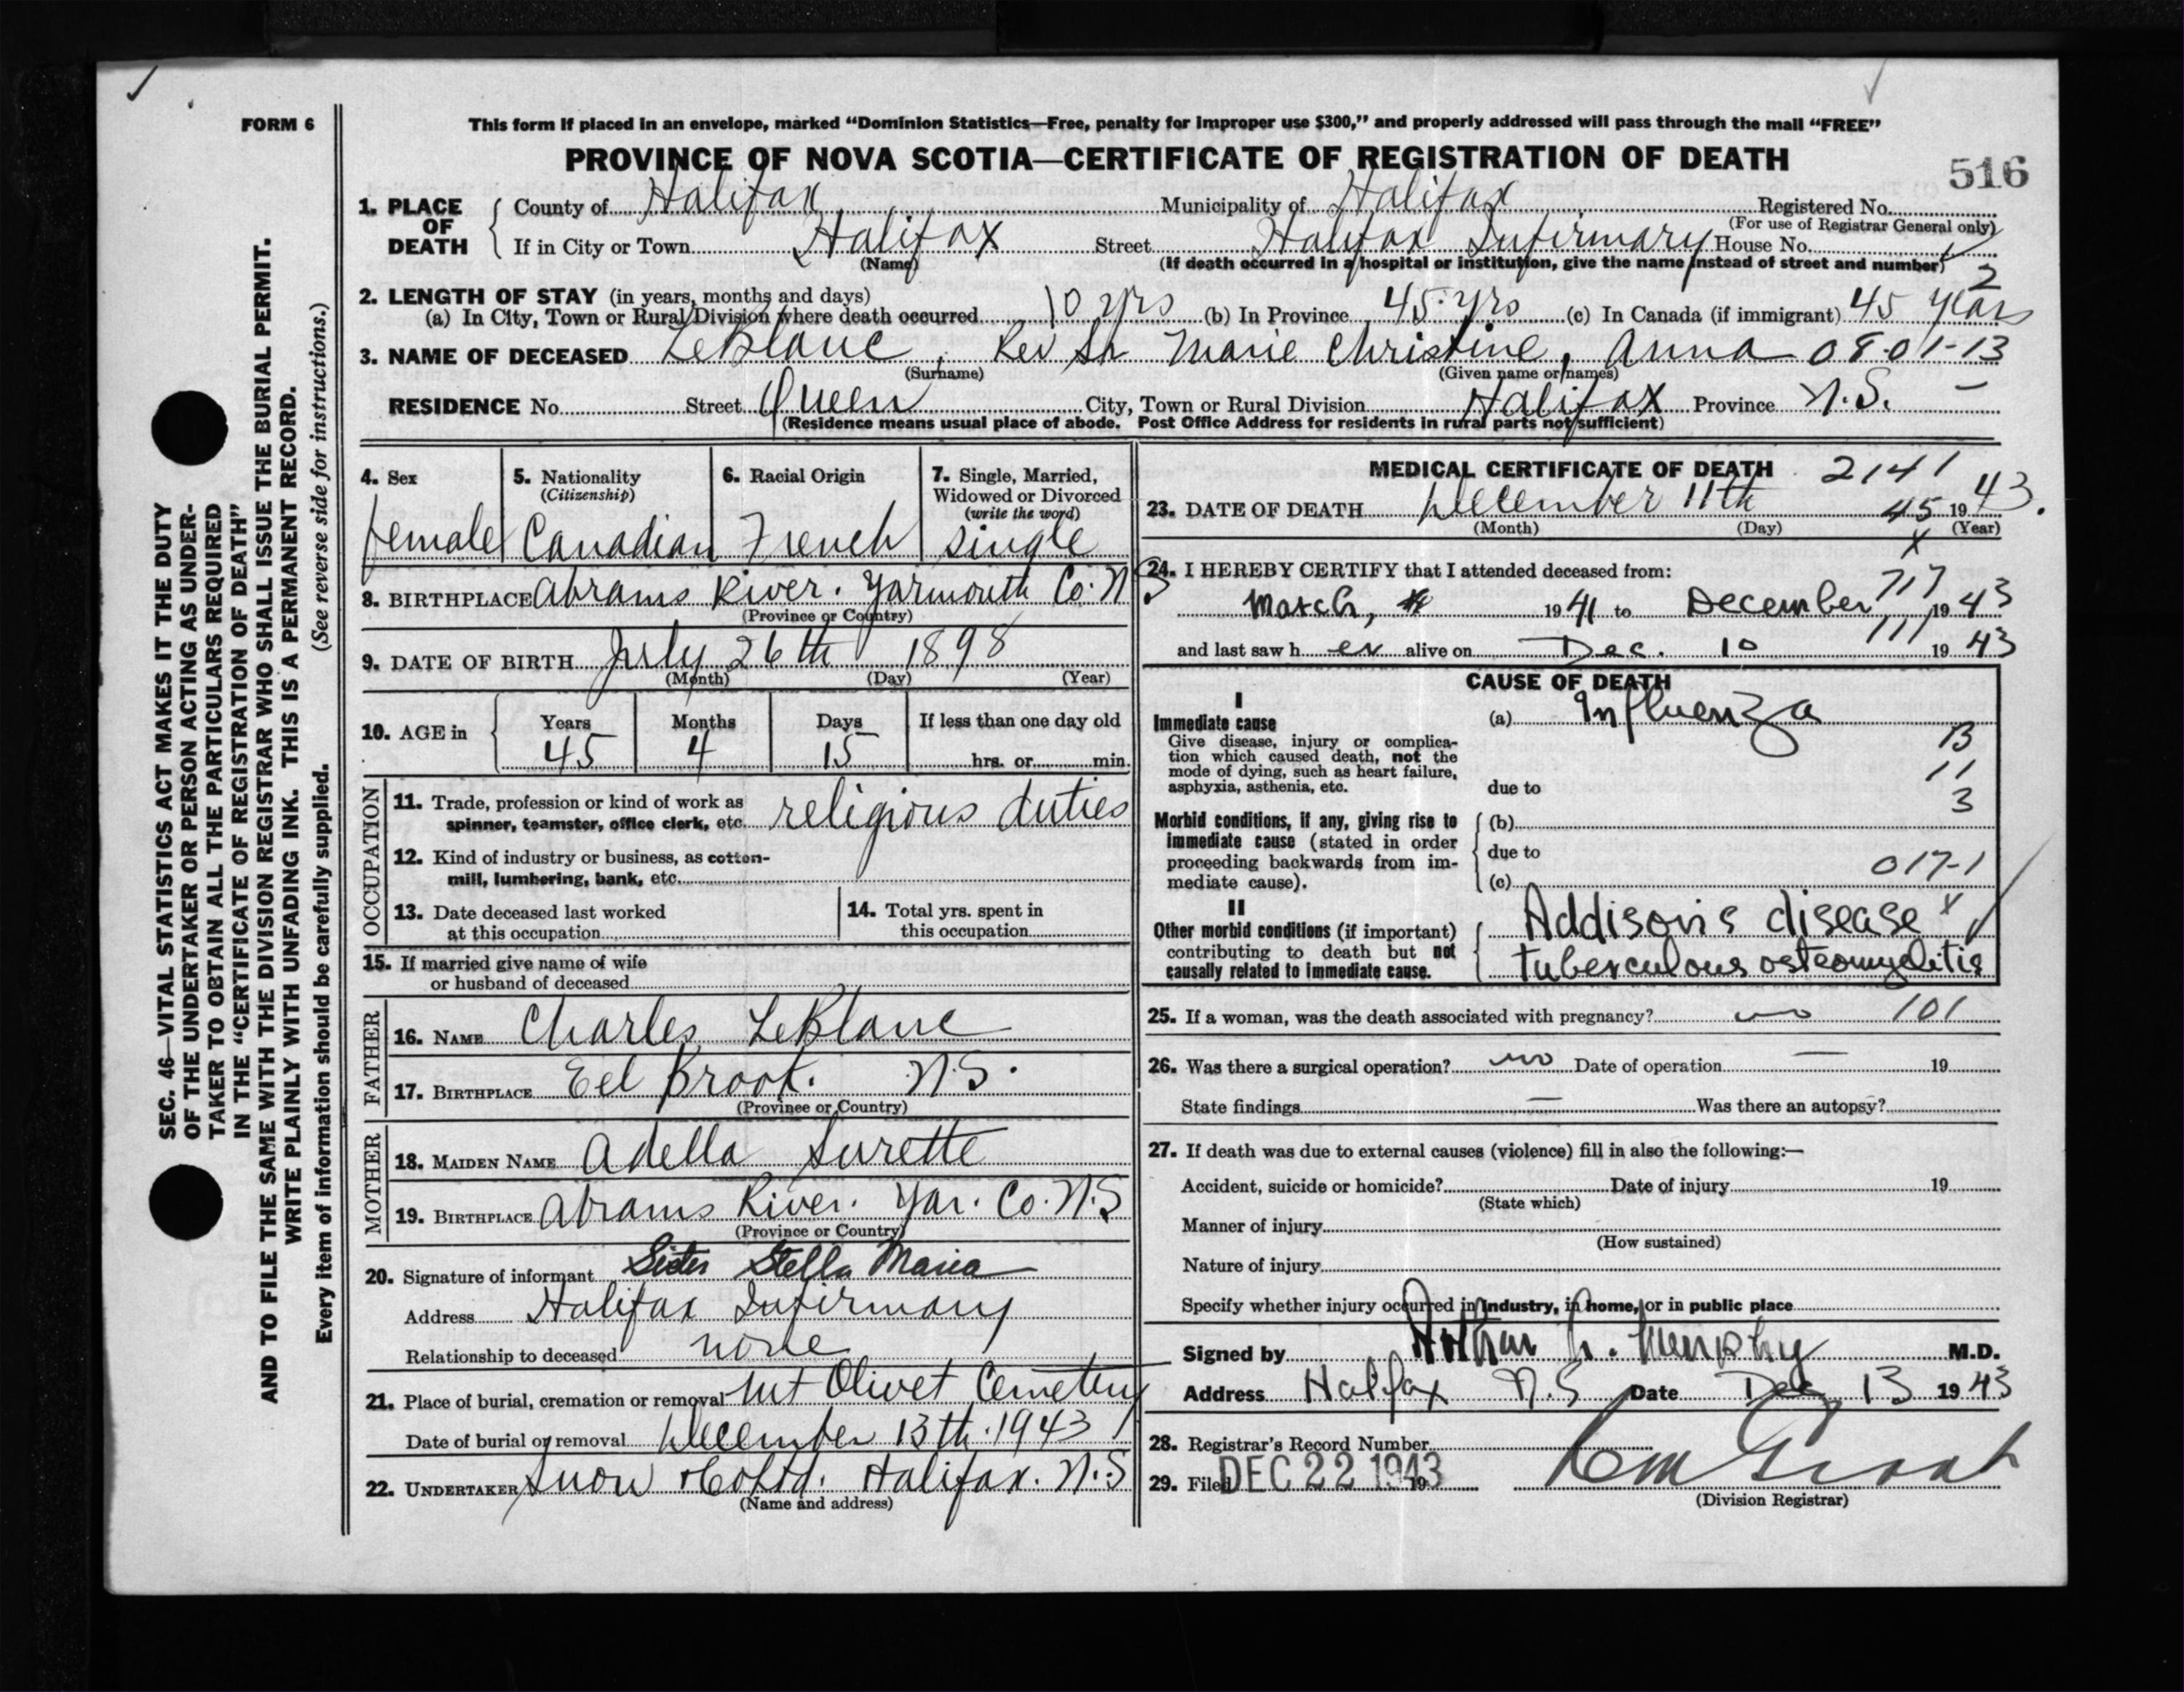 FORM 6
This form if placed in an envelope, marked "Dominion Statistics—Free, penalty for improper use $300," and properly addressed will pass through the mail "FREE"
PROVINCE OF NOVA SCOTIA—CERTIFICATE OF REGISTRATION OF DEATH
516
1. PLACE OF DEATH
County of Halifax Municipality of Halifax Registered No.
(For use of Registrar General only)
If in City or Town Halifax Street Halifax Infirmary House No.
(Name) (If death occurred in a hospital or institution, give the name instead of street and number)
2
2. LENGTH OF STAY (in years, months and days)
(a) In City, Town or Rural Division where death occurred 10 yrs (b) In Province 45 yrs (c) In Canada (if immigrant) 45 years
3. NAME OF DECEASED LeBlanc, Rev Sr Marie Christine, Anna 08-01-13
(Surname) (Given name or names)
RESIDENCE No. Street Queen City, Town or Rural Division Halifax Province N.S. —
(Residence means usual place of abode. Post Office Address for residents in rural parts not sufficient)
4. Sex
female
5. Nationality
(Citizenship)
Canadian
6. Racial Origin
French
7. Single, Married,
Widowed or Divorced
(write the word)
single
8. BIRTHPLACE Abrams River. Yarmouth Co. N S
(Province or Country)
9. DATE OF BIRTH July 26th 1898
(Month) (Day) (Year)
10. AGE in
Years Months Days If less than one day old
45 4 15 hrs. or min.
OCCUPATION
11. Trade, profession or kind of work as
spinner, teamster, office clerk, etc. religious duties
12. Kind of industry or business, as cotton-
mill, lumbering, bank, etc.
13. Date deceased last worked
at this occupation
14. Total yrs. spent in
this occupation
15. If married give name of wife
or husband of deceased
FATHER
16. NAME Charles LeBlanc
17. BIRTHPLACE Eel Brook. N.S.
(Province or Country)
MOTHER
18. MAIDEN NAME Adella Surette
19. BIRTHPLACE Abrams River. Yar. Co. N.S
(Province or Country)
20. Signature of informant Sister Stella Maria
Address Halifax Infirmary
Relationship to deceased none
21. Place of burial, cremation or removal Mt Olivet Cemetery
Date of burial or removal December 13th. 1943
22. UNDERTAKER Snow & Co Ltd. Halifax. N.S
(Name and address)
MEDICAL CERTIFICATE OF DEATH 2141
23. DATE OF DEATH December 11th 45 1943.
(Month) (Day) (Year)
x
24. I HEREBY CERTIFY that I attended deceased from:
March, 1941 to December 717 1943
and last saw her alive on Dec. 10 111 1943
CAUSE OF DEATH
I
Immediate cause
Give disease, injury or complica-
tion which caused death, not the
mode of dying, such as heart failure,
asphyxia, asthenia, etc.
(a) Influenza
13
11
3
due to
Morbid conditions, if any, giving rise to
immediate cause (stated in order
proceeding backwards from im-
mediate cause).
(b)
due to
017-1
(c)
II
Other morbid conditions (if important)
contributing to death but not
causally related to immediate cause.
Addison's disease x
tuberculous osteomyelitis
25. If a woman, was the death associated with pregnancy? no 101
26. Was there a surgical operation? no Date of operation — 19
State findings — Was there an autopsy?
27. If death was due to external causes (violence) fill in also the following:—
Accident, suicide or homicide? Date of injury 19
(State which)
Manner of injury
(How sustained)
Nature of injury
Specify whether injury occurred in industry, in home, or in public place
Signed by Arthur Murphy M.D.
Address Halifax N.S Date Dec 13 1943
28. Registrar's Record Number
29. Filed DEC 22 1943 19
(Division Registrar)
SEC. 46—VITAL STATISTICS ACT MAKES IT THE DUTY
OF THE UNDERTAKER OR PERSON ACTING AS UNDER-
TAKER TO OBTAIN ALL THE PARTICULARS REQUIRED
IN THE "CERTIFICATE OF REGISTRATION OF DEATH"
AND TO FILE THE SAME WITH THE DIVISION REGISTRAR WHO SHALL ISSUE THE BURIAL PERMIT.
WRITE PLAINLY WITH UNFADING INK. THIS IS A PERMANENT RECORD.
Every item of information should be carefully supplied. (See reverse side for instructions.)